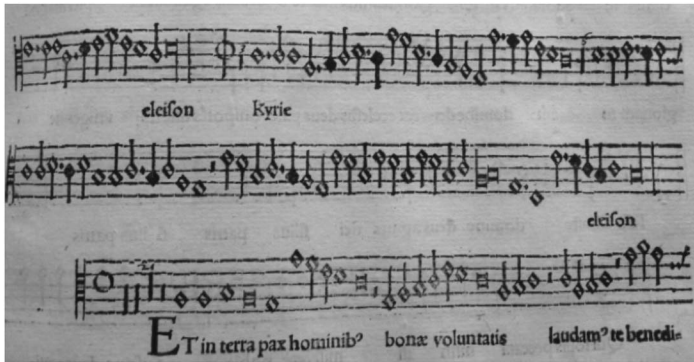 eleison Kyrie
eleison
ET in terra pax hominibꝰ bonæ voluntatis laudamꝰ te benedi-